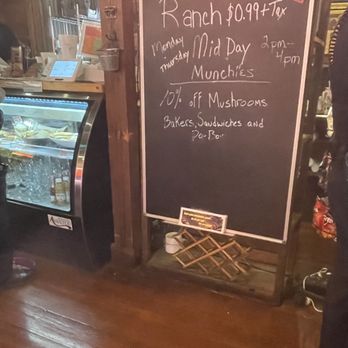 Ranch $0.99 + Tax
Monday
Thursday
Mid Day
2pm-
4pm
Munchies
10% off Mushrooms
Bakers, Sandwiches and
Po-Bo